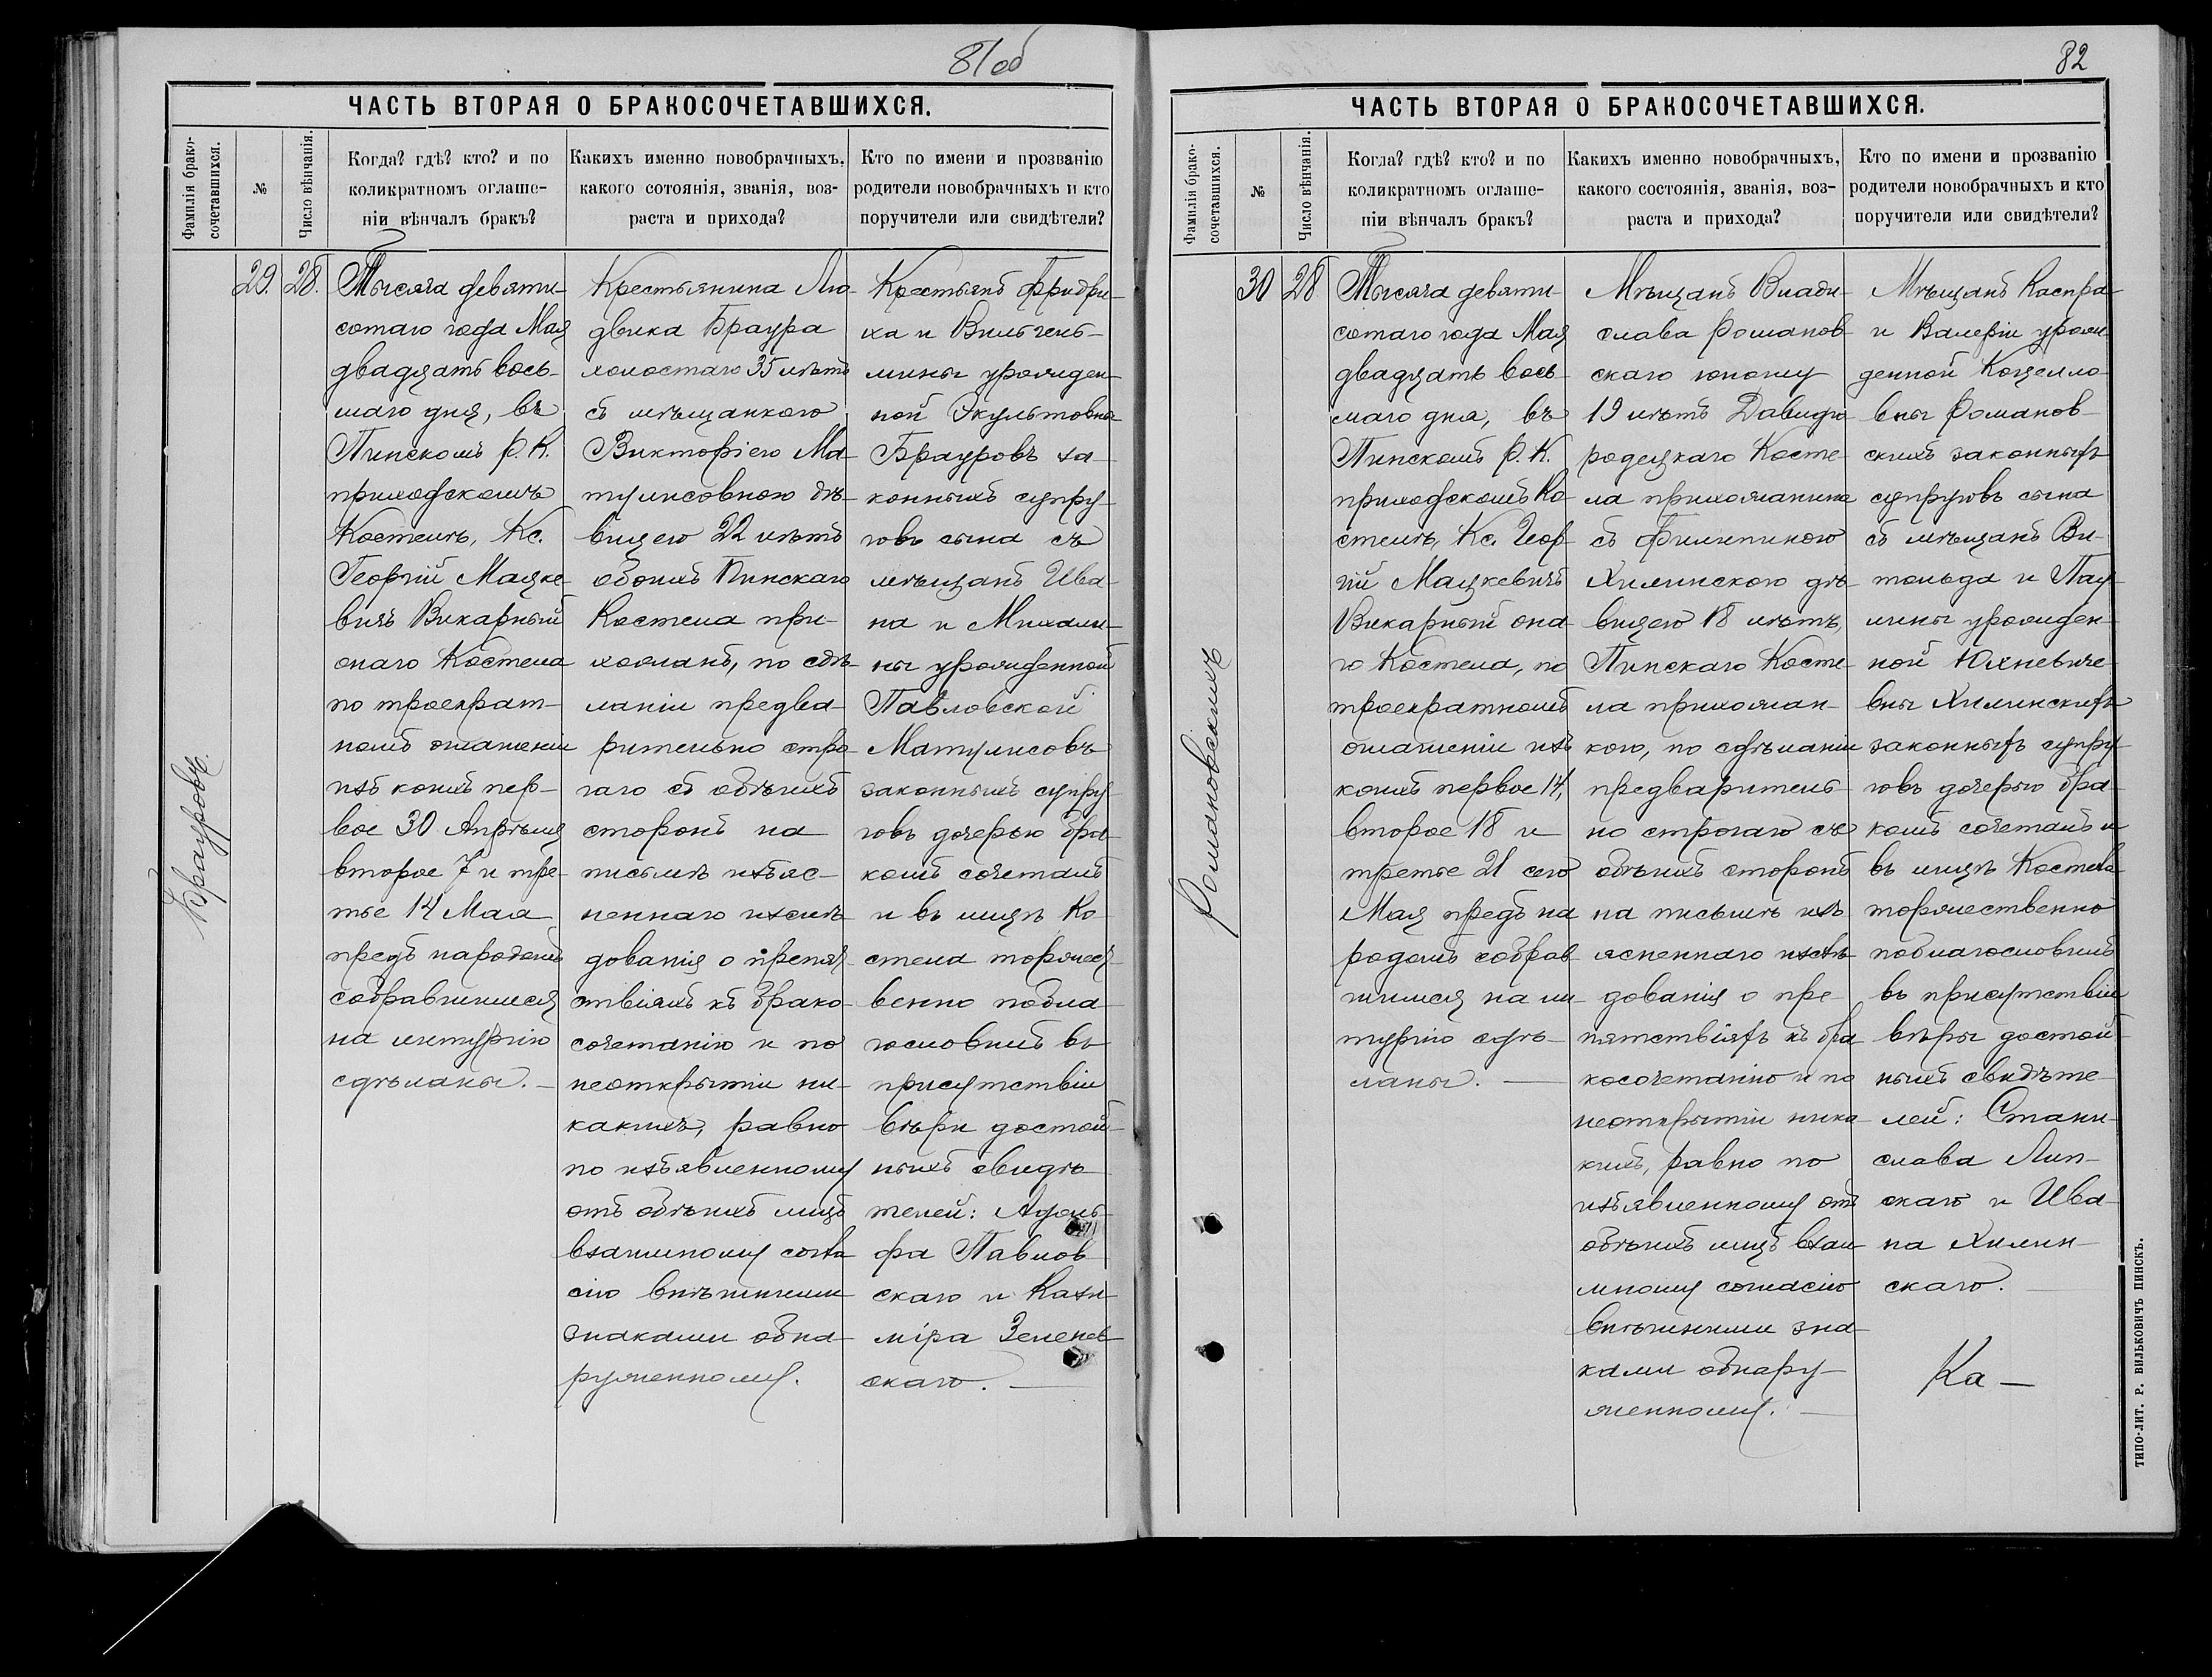 81об
ЧАСТЬ ВТОРАЯ О БРАКОСОЧЕТАВШИХСЯ.
Фамилія брако-
сочетавшихся.
№
Число вѣнчанія.
Когда? гдѣ? кто? и по
коликратномъ оглаше-
ніи вѣнчалъ бракъ?
Какихъ именно новобрачныхъ,
какого сотоянія, званія, воз-
раста и прихода?
Кто по имени и прозванію
родители новобрачныхъ и кто
поручители или свидѣтели?
Брауровъ.
29.
28.
Тысяча девяти-
сотаго года Мая
двадцать вось-
маго дня, въ
Пинскомъ Р. К.
приходскомъ
Костелѣ, Кс.
Георгій Мацке-
вичъ Викарный
онаго Костела
по троекрат-
номъ оглашеніи
изъ коихъ пер-
вое 30 Апрѣля
второе 7 и тре-
тье 14 Мая
предъ народомъ
собравшимся
на литургію
сдѣланы. —
Крестьянина Лю-
двика Браура
холостаго 35 лѣтъ
съ мѣщанкою
Викторіею Ма-
тулисовною дѣ-
вицею 22 лѣтъ
обоихъ Пинскаго
Костела при-
хожанъ, по сдѣ-
ланіи предва-
рительно стро-
гаго съ обѣихъ
сторонъ на
письмѣ изъяс-
неннаго изслѣ-
дованія о препят-
ствіяхъ къ брако-
сочетанію и по
неоткрытіи ни-
какихъ, равно
по изъявленному
отъ обѣихъ лицъ
взаимному согла-
сію внѣшними
знаками обна-
руженному.
Крестьянъ Фридри-
ха и Вильгель-
мины урожден-
ной Экультовна
Брауровъ за-
конныхъ супру-
говъ сына съ
мѣщанъ Ива-
на и Михали-
ны урожденной
Павловской
Матулисовъ
законныхъ супру-
говъ дочерью бра-
комъ сочеталъ
и въ лицѣ Ко-
стела торжест-
венно побла-
гословилъ въ
присутствіи
вѣры достой-
ныхъ свидѣ-
телей: Адоль-
фа Павлов-
скаго и Кази-
міра Зеленев-
скаго. —
82
ЧАСТЬ ВТОРАЯ О БРАКОСОЧЕТАВШИХСЯ.
Фамилія брако-
сочетавшихся.
№
Число вѣнчанія.
Когда? гдѣ? кто? и по
коликратномъ оглаше-
ніи вѣнчалъ бракъ?
Какихъ именно новобрачныхъ,
какого состоянія, званія, воз-
раста и прихода?
Кто по имени и прозванію
родители новобрачныхъ и кто
поручители или свидѣтели?
Романовскихъ
30
28
Тысяча девяти-
сотаго года Мая
двадцать вось-
маго дня, въ
Пинскомъ Р. К.
приходскомъ Ко-
стелѣ, Кс. Геор-
гій Мацкевичъ
Викарный она-
го Костела, по
троекратномъ
оглашеніи изъ
коихъ первое 14,
второе 18 и
третье 21 сего
Мая предъ на-
родомъ собрав-
шимся на ли-
тургію сдѣ-
ланы. —
Мѣщанъ Влади-
слава Романов-
скаго юношу
19 лѣтъ Давидго-
родецкаго Косте-
ла прихожанина
съ Филипиною
Хилинскою дѣ-
вицею 18 лѣтъ,
Пинскаго Косте-
ла прихожан-
кою, по сдѣланіи
предваритель-
но строгаго съ
обѣихъ сторонъ
на письмѣ изъ-
ясненнаго изслѣ-
дованія о пре-
пятствіяхъ къ бра-
косочетанію и по
неоткрытіи ника-
кихъ, равно по
изъявленному отъ
обѣихъ лицъ взаи-
мному согласію
внѣшними зна-
ками обнару-
женному. —
Мѣщанъ Каспра
и Валеріи урож-
денной Коцелло-
вны Романов-
скихъ законныхъ
супруговъ сына
съ мѣщанъ Ви-
тольда и Пау-
лины урожден-
ной Юхневиче-
вны Хилинскихъ
законныхъ супру-
говъ дочерью бра-
комъ сочеталъ и
въ лицѣ Костела
торжественно
поблагословилъ
въ присутствіи
вѣры достой-
ныхъ свидѣте-
лей: Стани-
слава Лип-
скаго и Ива-
на Хилин-
скаго. —
Ка —
ТИПО-ЛИТ. Р. ВИЛЬКОВИЧЪ ПИНСКЪ.